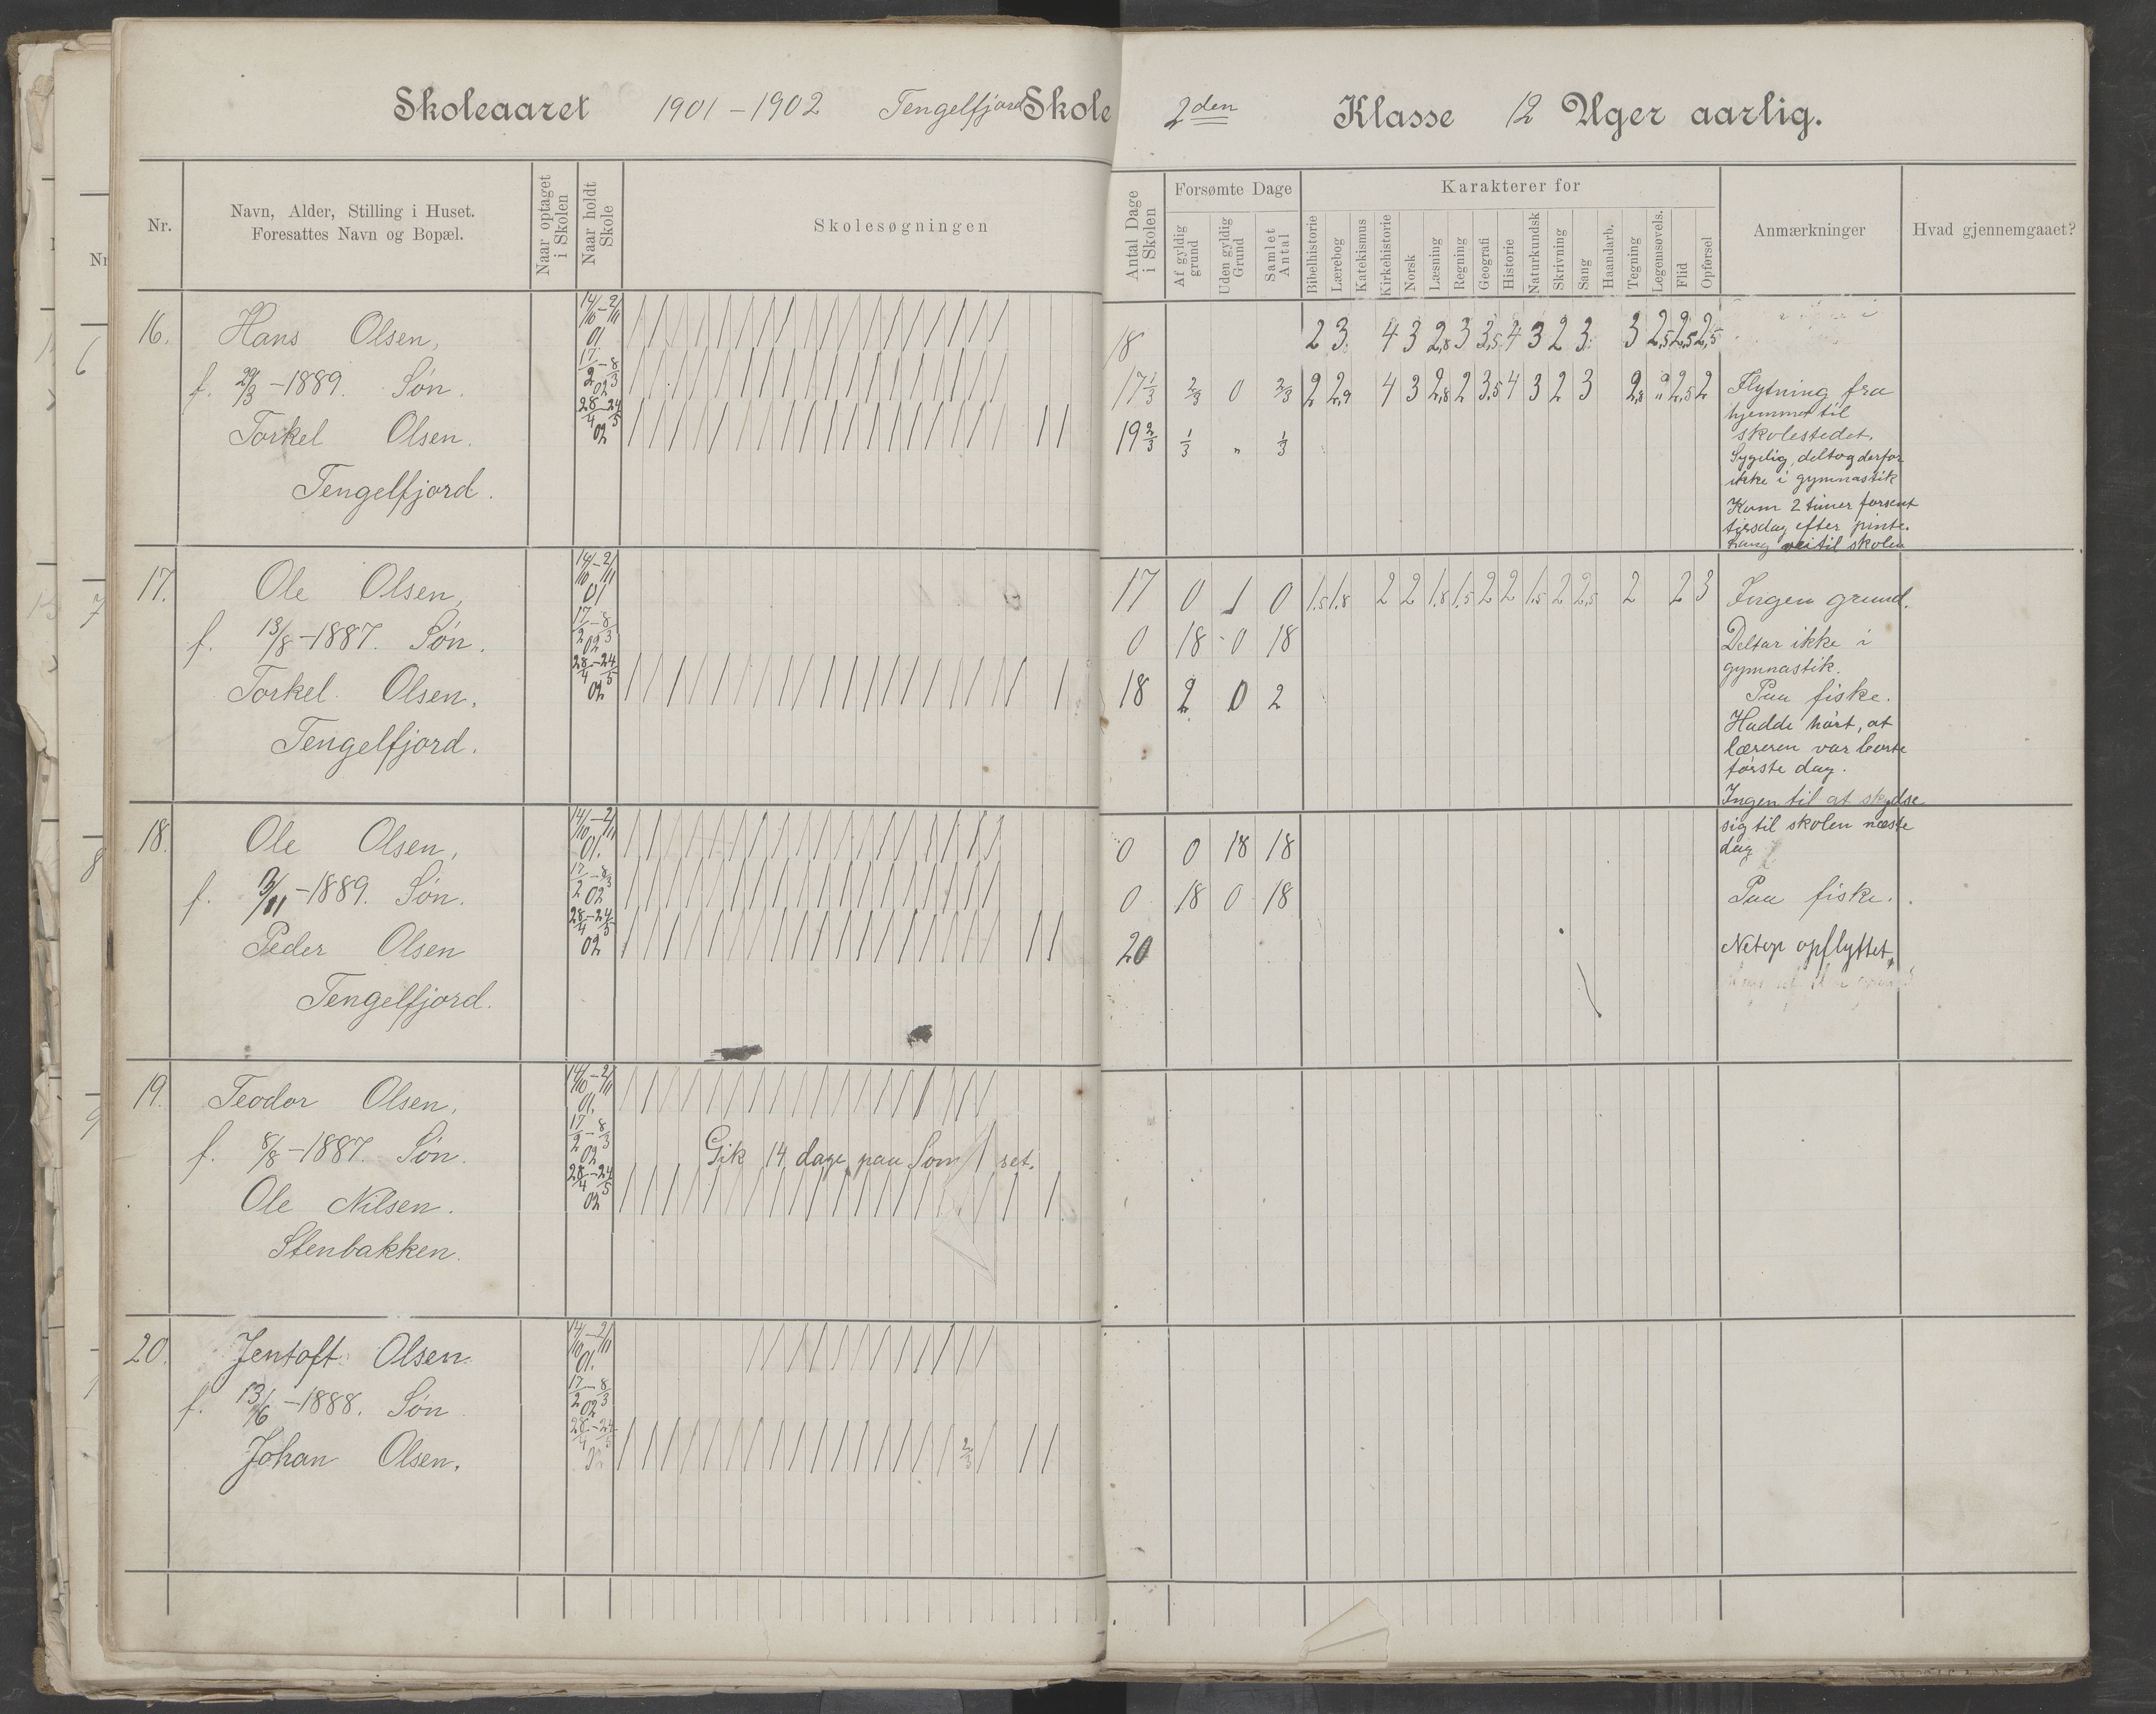 Skoleaaret 1901-1902 Tengelfjord Skole 2den Klasse 12 Uger aarlig.
Nr.
Navn, Alder, Stilling i Huset.
Foresattes Navn og Bopæl.
Naar optaget i Skolen
Naar holdt Skole
Skolesøgningen
Antal Dage i Skolen
Forsømte Dage
Af gyldig grund
Uden gyldig Grund
Samlet Antal
Karakterer for
Bibelhistorie
Lærebog
Katekismus
Kirkehistorie
Norsk
Læsning
Regning
Geografi
Historie
Naturkundsk
Skrivning
Sang
Haandarb.
Tegning
Legemsøvels.
Flid
Opførsel
Anmærkninger
Hvad gjennemgaaet?
16. Hans Olsen,
f. 29/3-1889. Søn.
Torkel Olsen.
Tengelfjord.
14/10-2/11 01
17/2-8/3 02
28/4-24/5 02
18 2 3. 4 3 2,8 3 3,5 4 3 2 3. 3 2,5 2,5 2,5
17 1/3 2/3 0 2/3 2 2,9 4 3 2,8 2 3,5 4 3 2 3 2,8 " 2,5 2
19 2/3 1/3 " 1/3
Flytning fra
hjemmet til
skolestedet.
Sygelig, deltog derfor
ikke i gymnastik
Kom 2 timer forsent
tirsdag efter pinte.
Lang vei til skolen
17. Ole Olsen,
f. 13/8-1887. Søn.
Torkel Olsen.
Tengelfjord.
14/10-2/11 01
17/2-8/3 02
28/4-24/5 02
17 0 1 0 1,5 1,8 2 2 1,8 1,5 2 2 1,5 2 2,5 2 2 3
0 18 0 18
18 2 0 2
Ingen grund.
Deltar ikke i
gymnastik.
Paa fiske.
Hadde hørt, at
læreren var borte
første dag.
Ingen til at skydse
sig til skolen næste
dag
18. Ole Olsen,
f. /11-1889. Søn.
Peder Olsen
Tengelfjord.
14/10-2/11 01.
17/2-8/3 02
28/4-24/5 02
0 0 18 18
0 18 0 18
20
Paa fiske.
Netop opflyttet.
19. Teodor Olsen,
f. 8/8-1887. Søn.
Ole Nilsen.
Stenbakken.
14/10-2/11 01.
17/2-8/3 02
28/4-24/5 02
Gik 14 dage paa
20. Jentoft Olsen.
f. 13/6-1888. Søn
Johan Olsen.
14/10-2/11 01.
17/2-8/3 02
28/4-24/5
2/3